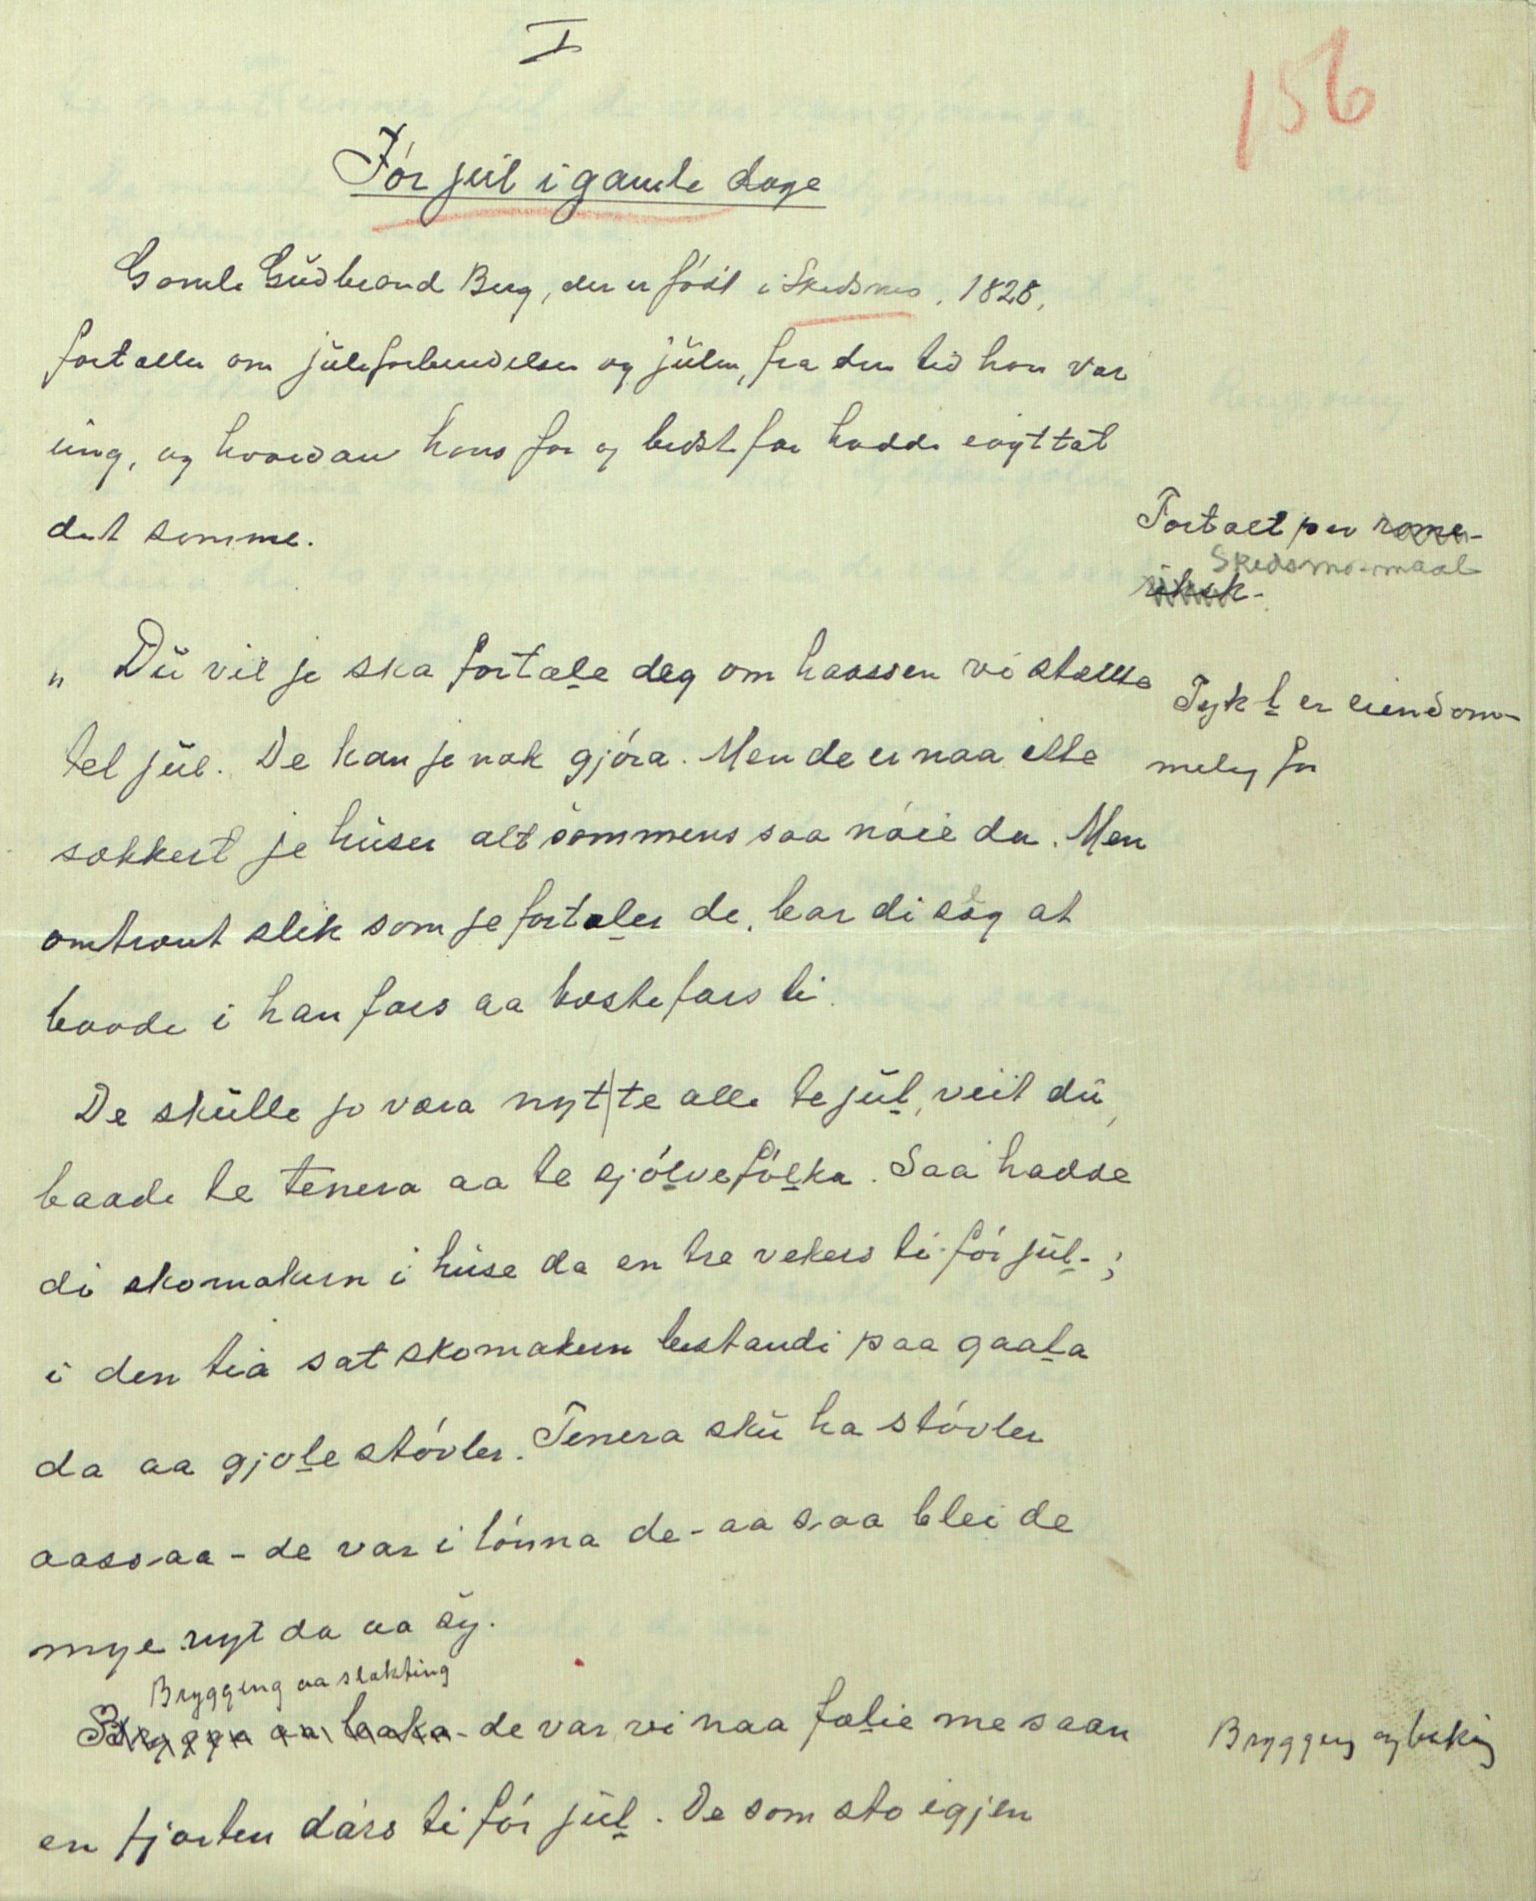 I
156
Før jul i gamle dage
Gamle Gudbrand Berg, der er født i Skedsmo, 1828,
fortæller om juleforberedelser og julen, fra den tid han var
ung, og hvordan hans far og bedstefar hadde iagttat
det samme.
Fortalt paa rome-
Skedsmo-maal
riksk-
„ Du vil je ska fortæle deg om haassen vi stællte
tel jul. De kan je nok gjøra. Men de er naa itte
sækkert je huser alt sammens saa nøie da. Men
omtrent slik som je fortæler de, bar di seg at
baade i han fars aa bestefars ti.
Tykt l er eiendom-
melig for
De skulle jo væra nytt te alle te jul, veit du,
baade te tenera aa te sjølvefølka. Saa hadde
di skomakern i huse da en tre vekers ti før jul-;
i den tia sat skomakern bestandi paa gaala
da aa gjole støvler. Tenera sku ha støvler
aassaa - de var i lønna de - aa saa blei de
mye nyt da aa sy.
Brygging aa slakting
Brygge aa baka - de var vi naa fælie me saan
Brygging og baking
en fjorten dars ti før jul. De som sto igjen